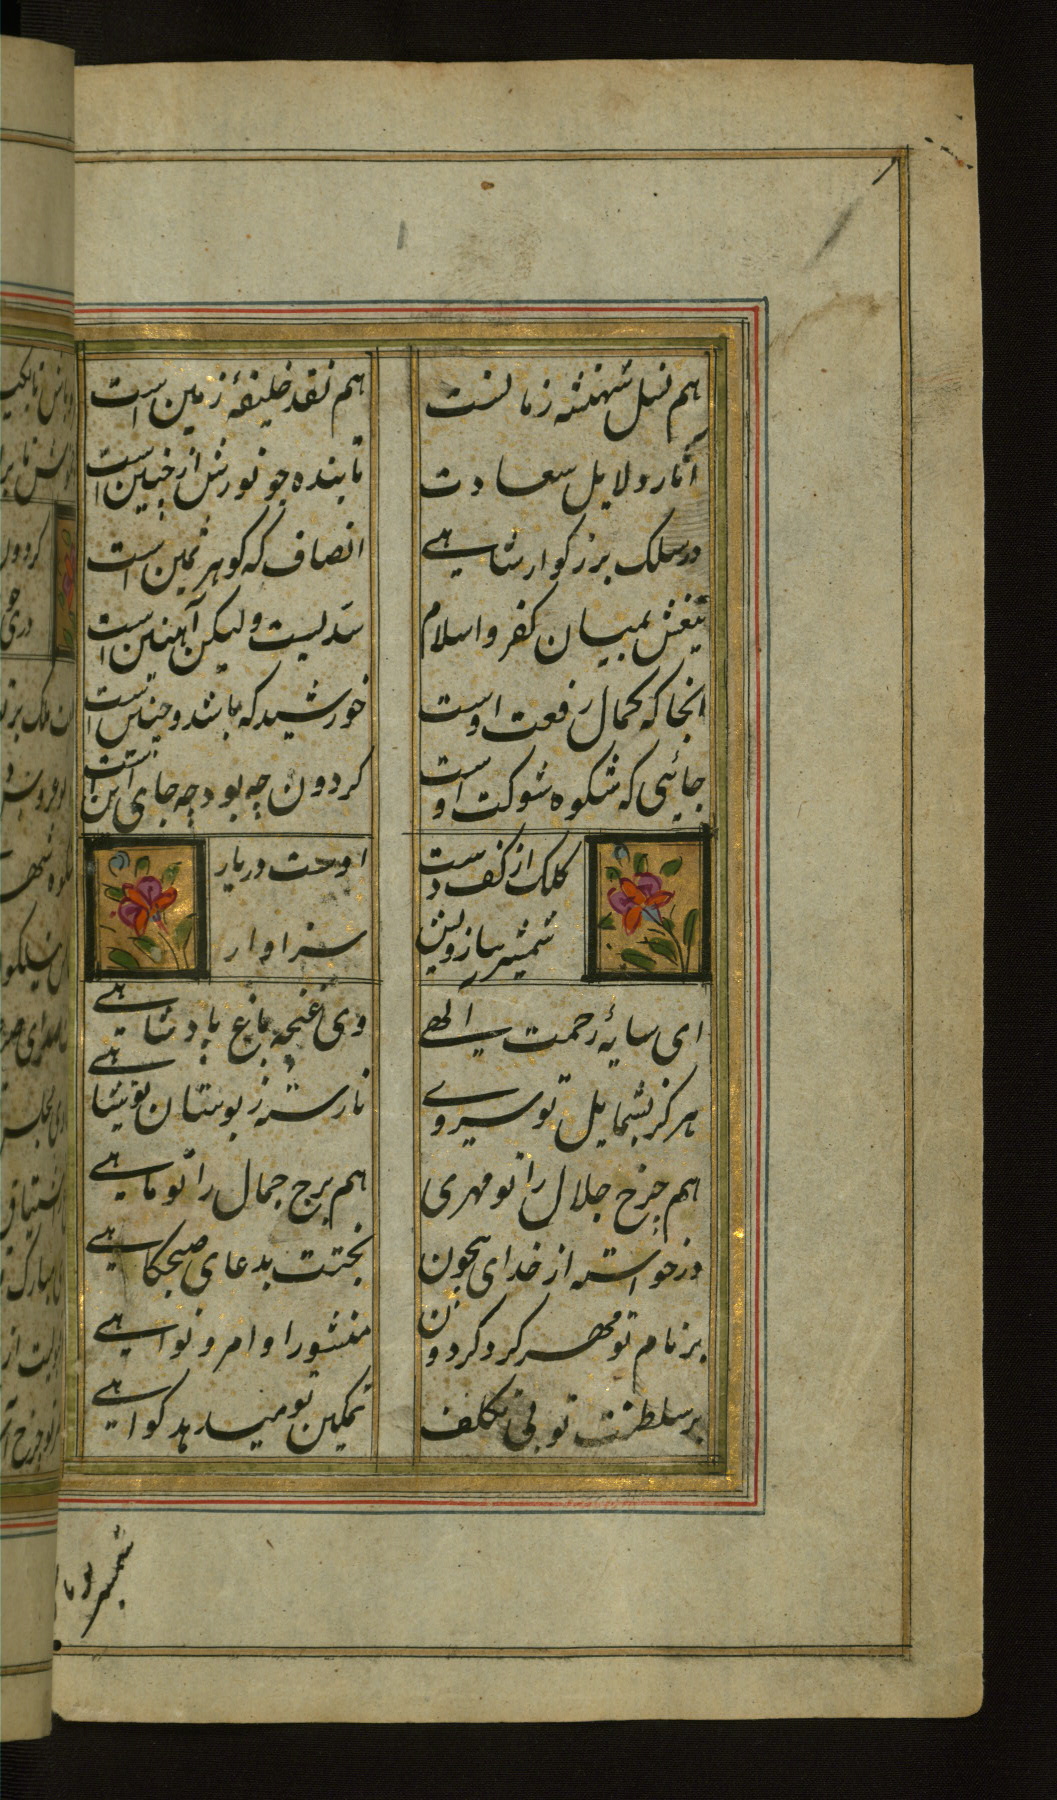 هم نسل شهنشه زمانست
هم نقد خلیفهٔ زمین است
آثار دلایل سعادت
تابنده چو نورش از جبین است
در سلک بزرکوار شاهی
انصاف که کوهر ثمین است
تیغش بمیان کفر و اسلام
سدیست ولیکن آهنین است
انجا که کمال رفعت اوست
خورشید که باشد و
جائی که شکوه شوکت اوست
کردون چه بود چه جای این است
کلک از کف دست
اوست دربار
شمشیر بازویش
سزاوار
ای سایهٔ رحمت آلهی
وی غنچه باغ پادشاهی
هرکز بشمایل تو سروی
نارسته ز بوستان شاهی
هم چرخ جلال را تو مهری
هم برج جمال را تو ماهی
درخواسته از خدای بیچون
بختت بدعای صبحکاهی
بر نام تو مهر کرد کردون
منشور اوامر و نواهی
بر سلطنت تو بی تکلف
تمکین تو میدهد کواهی